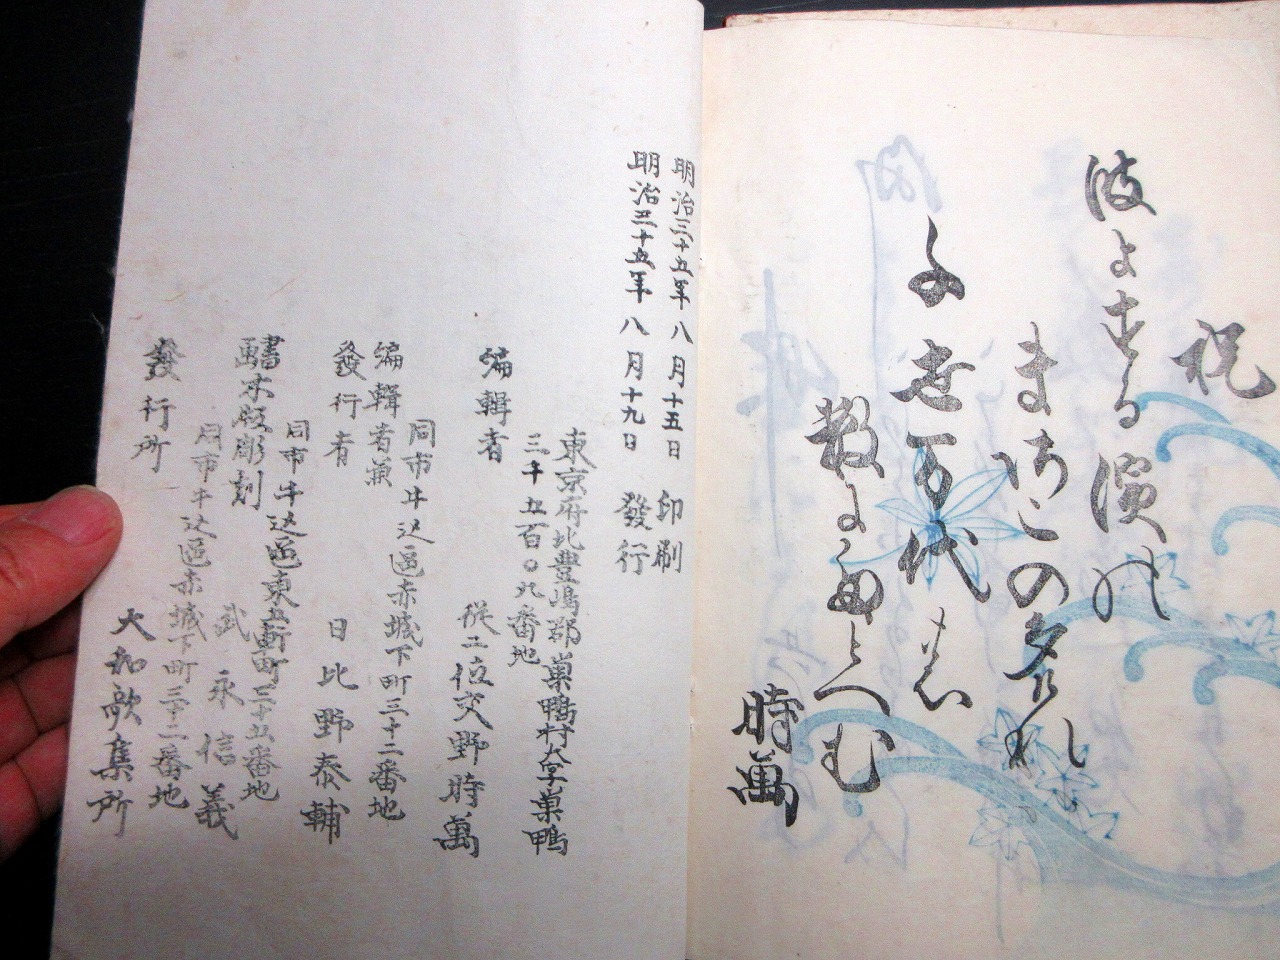 祝
波よする濱乃
まさこの多れ
千世万代も
数よ多とへむ
時萬
明治三十五年八月十五日 印刷
明治三十五年八月十九日 發行
東京府北豊嶋郡巣鴨村大字巣鴨
三千五百〇九番地
編輯者 従二位交野時萬
同市牛込區赤城下町三十二番地
編輯者兼
發行者 日比野泰輔
同市牛込區東五軒町三十五番地
木版彫刻 武永信義
同市牛込區赤城下町三十二番地
發行所 大和歌集所